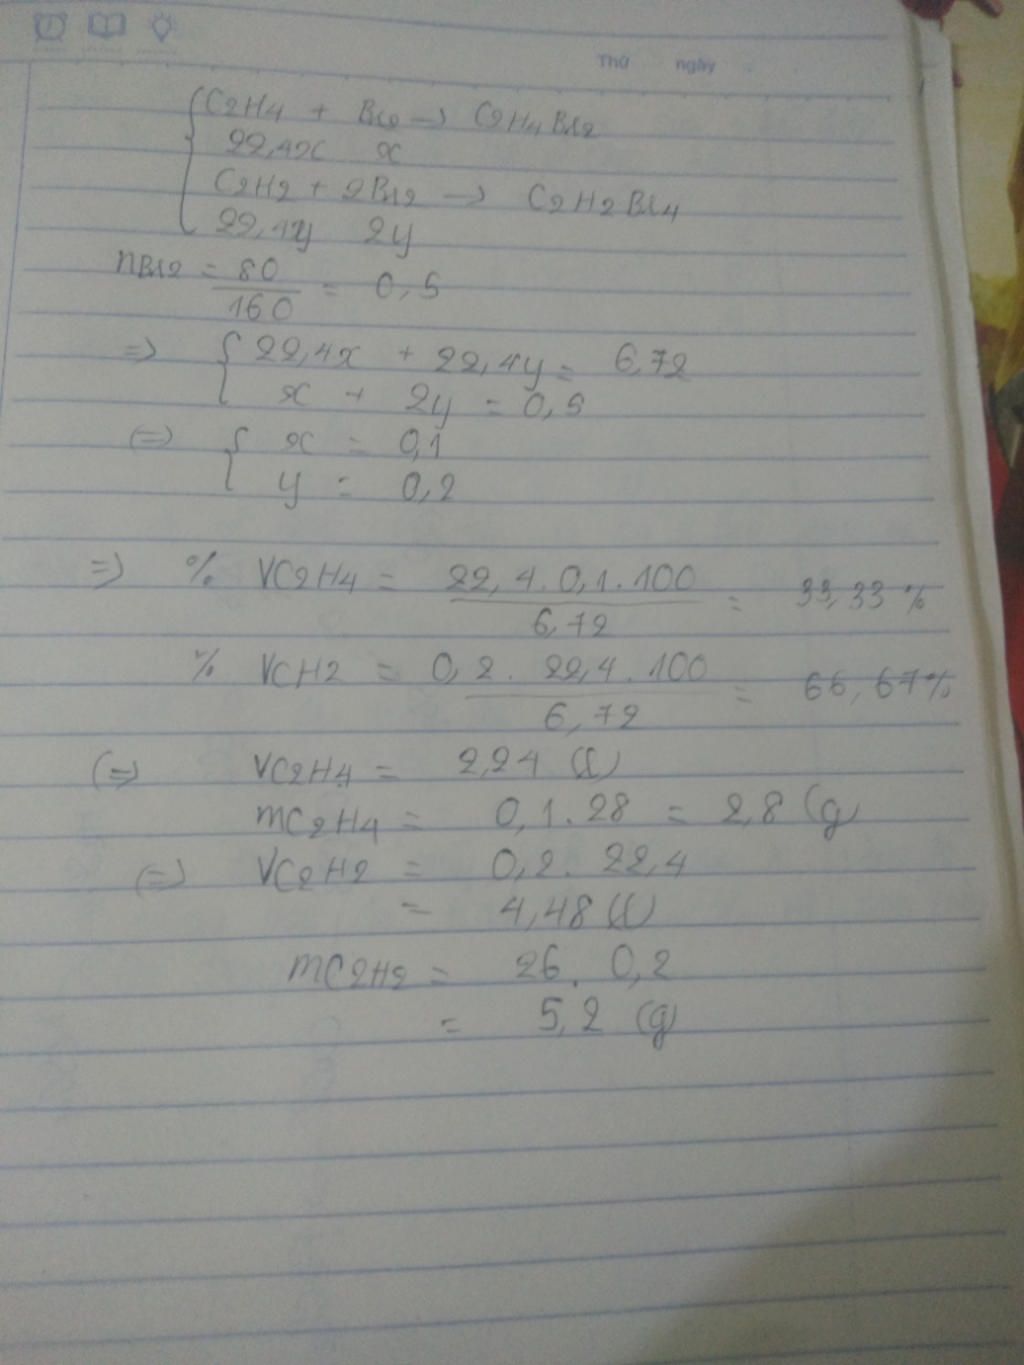 Thứ ngày
C2H4 + Br2 → C2H4Br2
22,4x x
C2H2 + 2Br2 → C2H2Br4
22,4y 2y
nBr2 = 80/160 = 0,5
=> { 22,4x + 22,4y = 6,72
x + 2y = 0,5
(=) { x = 0,1
y = 0,2
=) % VC2H4 = 22,4.0,1.100/6,72 = 33,33 %
% VCH2 = 0,2. 22,4.100/6,72 = 66,67%
(=) VC2H4 = 2,24 (l)
mC2H4 = 0,1.28 = 2,8 (g)
(=) VC2H2 = 0,2. 22,4
= 4,48 (l)
mC2H2 = 26. 0,2
= 5,2 (g)